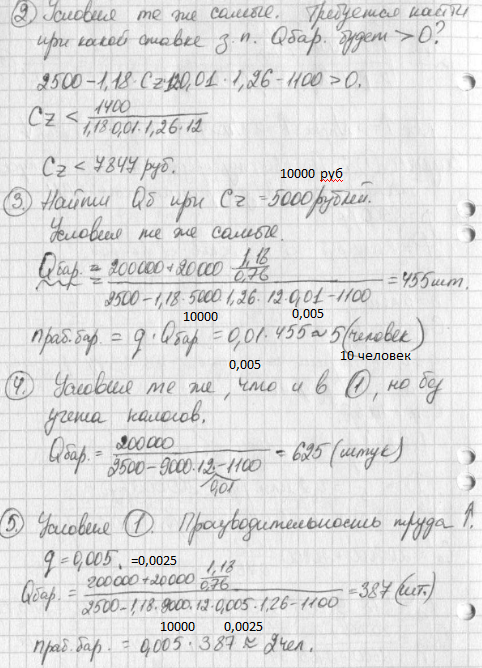 ② Условия те же самые. Требуется найти
при какой ставке з.п. Qбар. будет > 0?
2500 – 1,18 · Cz · 12 · 0,01 · 1,26 – 1100 > 0.
Cz < 1400 / 1,18·0,01·1,26·12
Cz < 7847 руб.
10000 руб
③. Найти Qб при Cz = 5000 рублей.
Условия те же самые.
Qбар. = 200000 + 20000 1,18/0,76 / 2500 – 1,18 · 5000 · 1,26 · 12 · 0,01 – 1100 = 455 шт.
10000 0,005
Праб.бар. = q · Qбар = 0,01 · 455 ≈ 5 (человек)
0,005 10 человек
④. Условия те же, что и в ①, но без
учета налогов.
Qбар. = 200000 / 2500 – 9000 · 12 · 0,01 – 1100 = 625 (штук)
⑤ Условие ①. Производительность труда
q = 0,005. =0,0025
Qбар. = 200000 + 20000 1,18/0,76 / 2500 – 1,18 · 9000 · 12 · 0,005 · 1,26 – 1100 = 387 (шт.)
10000 0,0025
Праб.бар. = 0,005 · 387 ≈ 2 чел.